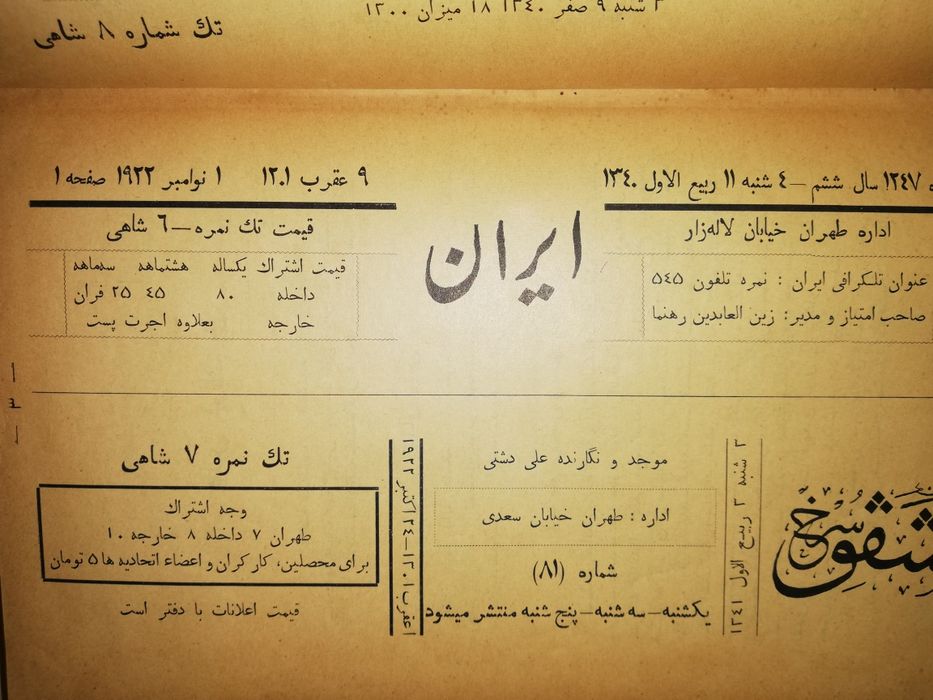 ۳ شنبه ۹ صفر ۱۳٤۰ ۱۸ میزان ۱۳۰۰
تك شماره ۸ شاهی
۱۲٤۷ سال ششم – ٤ شنبه ۱۱ ربیع الاول ۱۳٤۰
۹ عقرب ۱۳۰۱ ۱ نوامبر ۱۹۲۲ صفحه ۱
اداره طهران خیابان لاله‌زار
عنوان تلگرافی ایران : نمره تلفون ٥٤٥
صاحب امتیاز و مدیر: زین العابدین رهنما
ایران
قیمت تك نمره – ٦ شاهی
قیمت اشتراك یکساله هشتماهه سه‌ماهه
داخله ۸۰ ٤٥ ۲٥ قران
خارجه بعلاوه اجرت پست
– ۳ –
شفق سرخ
۳ شنبه ۳ ربیع الاول ۱۳٤۱
موجد و نگارنده علی دشتی
اداره : طهران خیابان سعدی
شماره (۸۱)
یکشنبه – سه شنبه – پنج شنبه منتشر میشود
۱ عقرب ۱۳۰۱ – ۲٤ اکتبر ۱۹۲۲
تك نمره ۷ شاهی
وجه اشتراك
طهران ۷ داخله ۸ خارجه ۱۰
برای محصلین، کارکران و اعضاء اتحادیه ها ٥ تومان
قیمت اعلانات با دفتر است